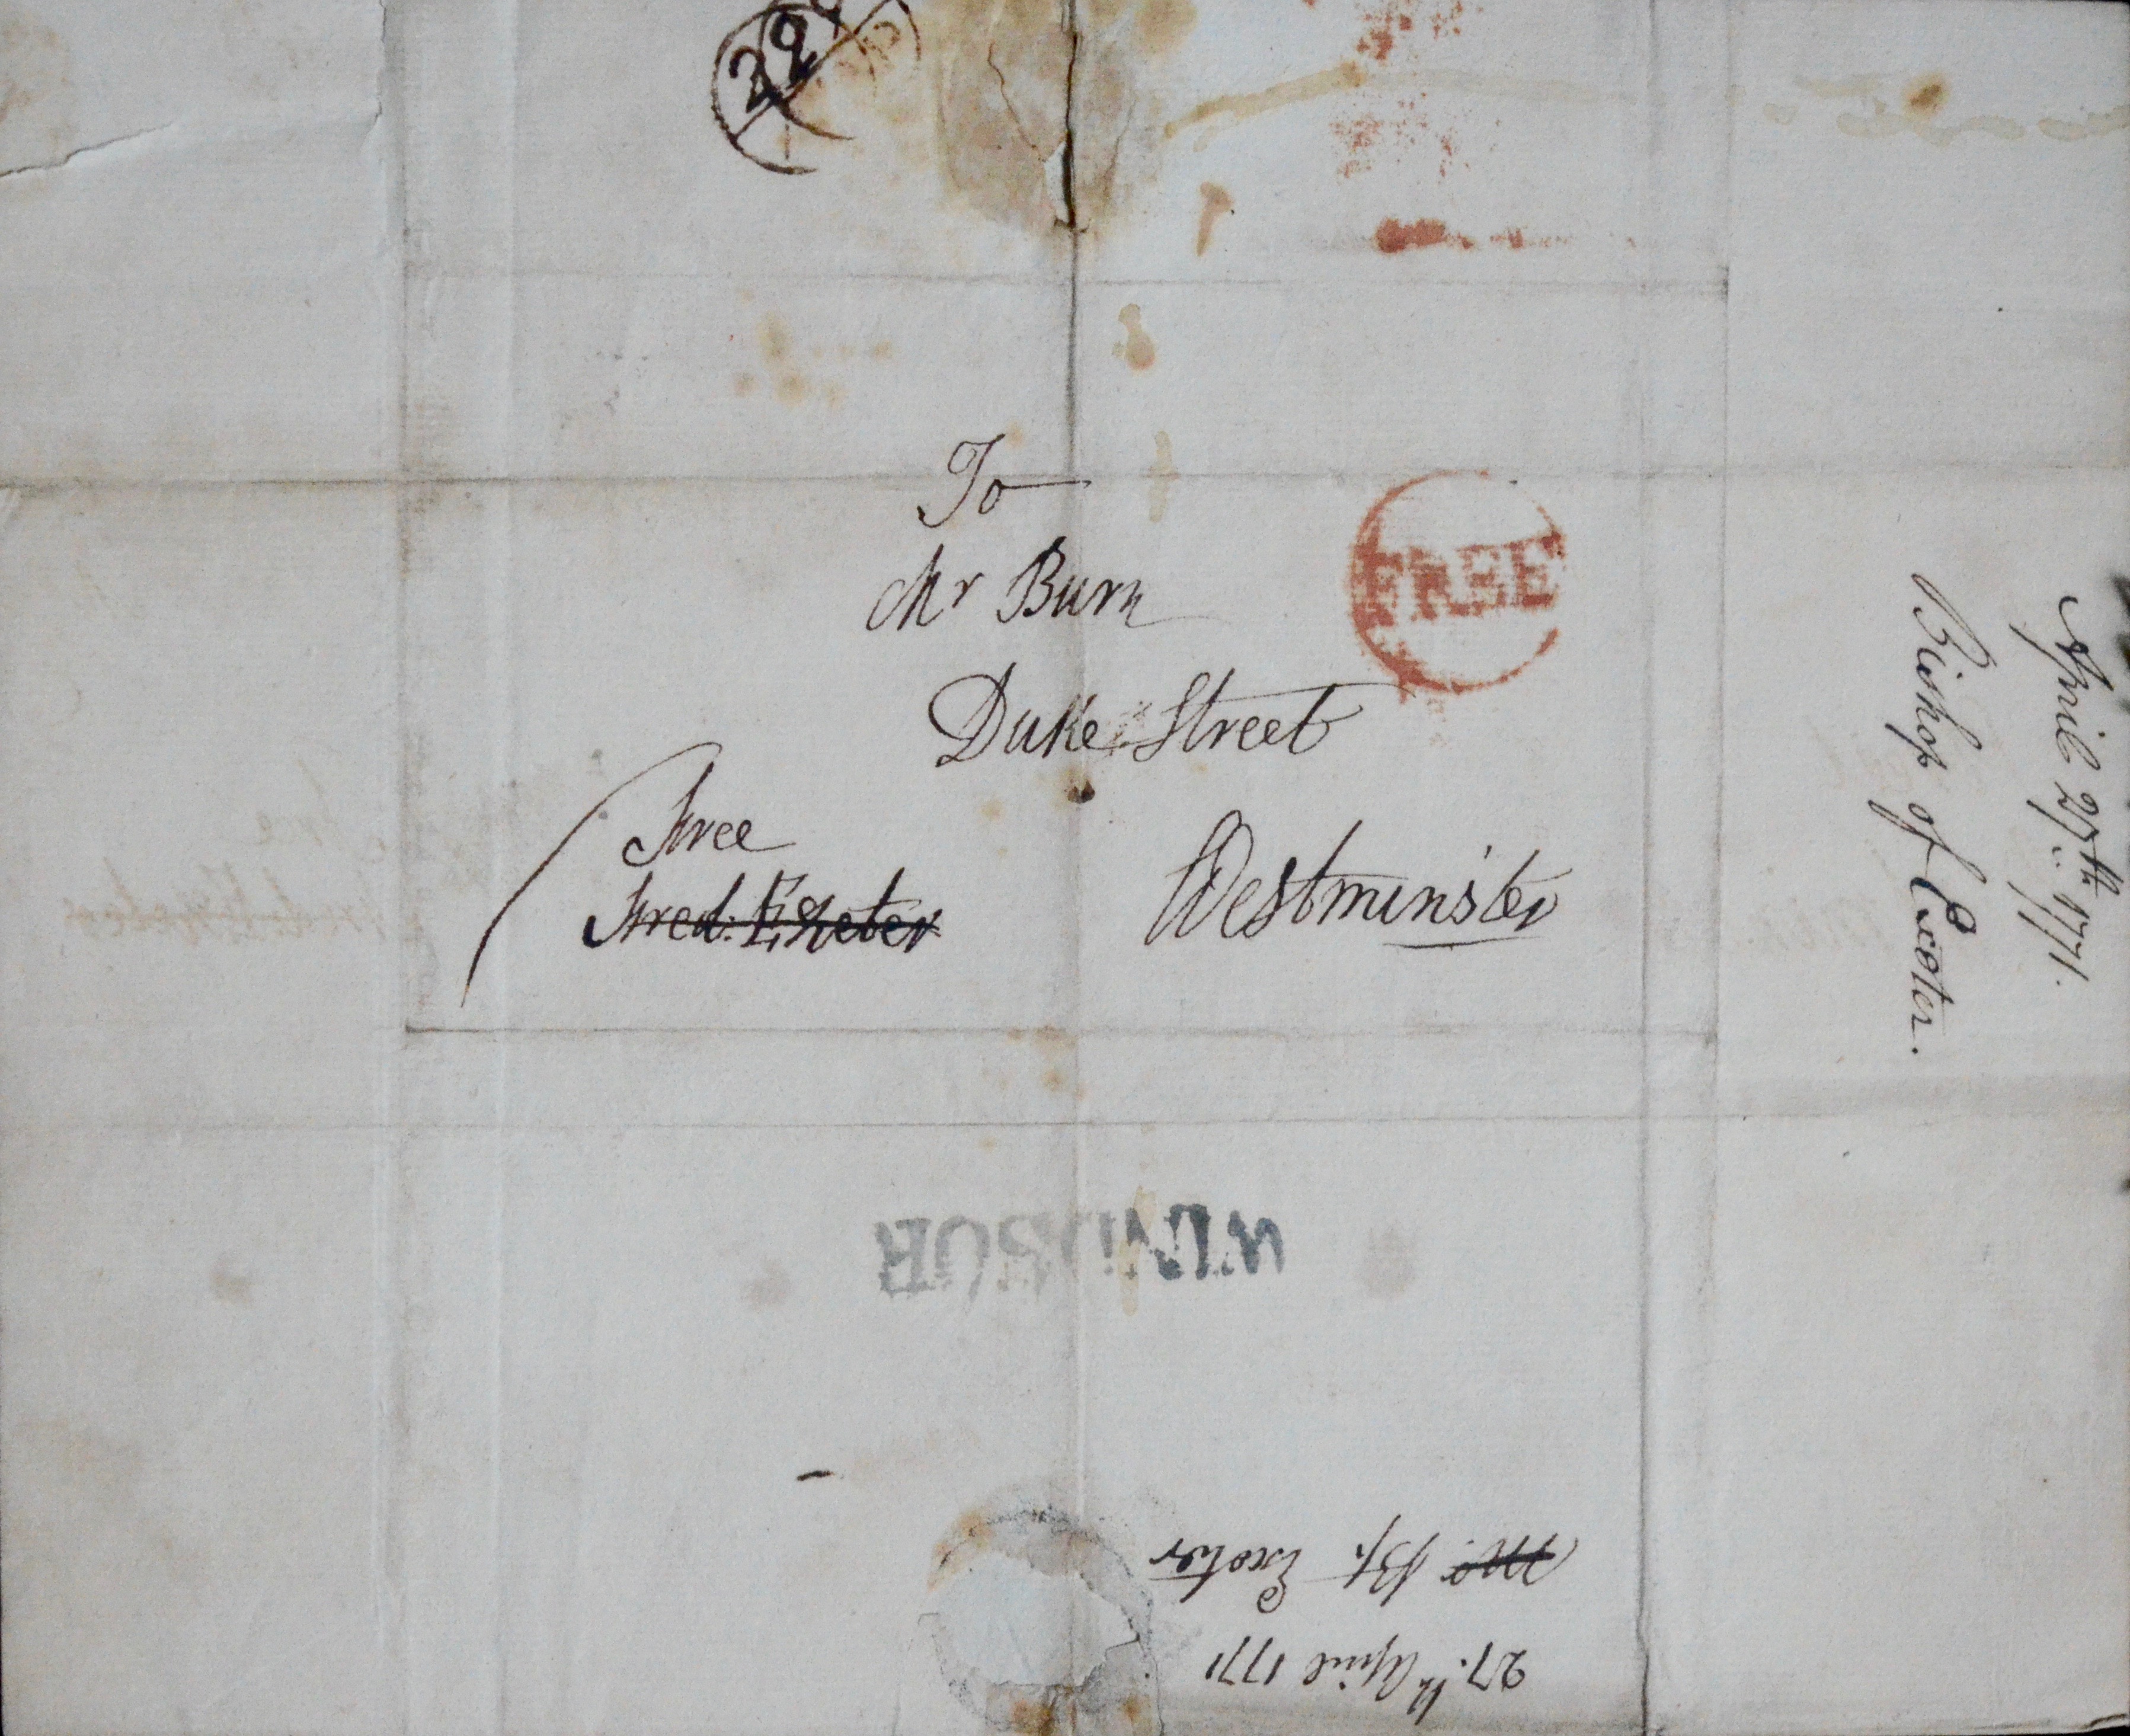 29
To
Mr Burn
FREE
Duke Street
Free
Westminster
Fred: Exeter
April 27th. 1771.
Bishop of Exeter.
WINDSOR
27.th April 1771
Mr. Bp. Exeter